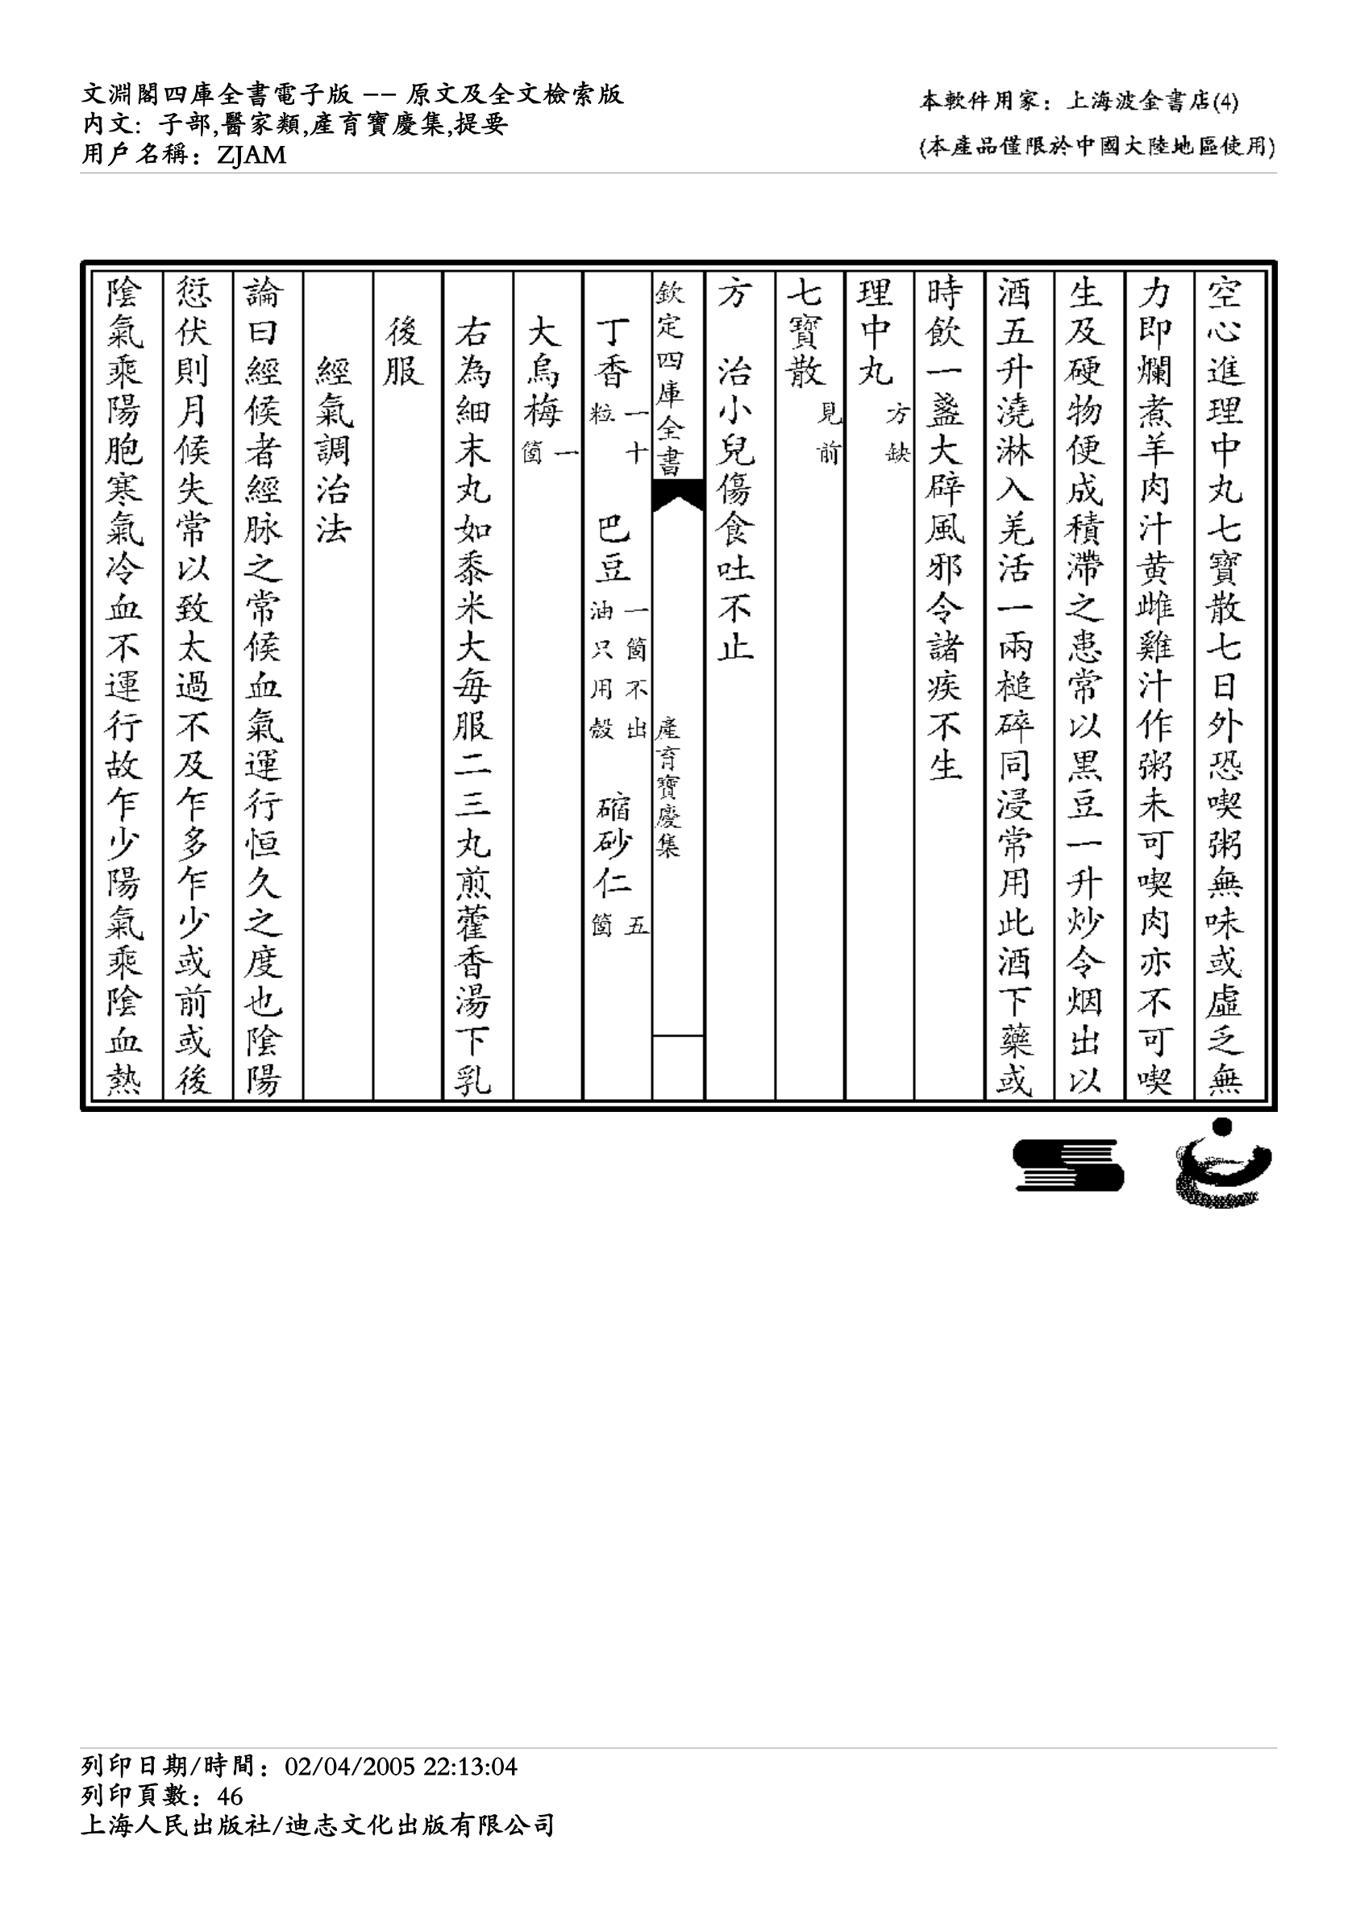 文淵閣四庫全書電子版 -- 原文及全文檢索版
內文: 子部,醫家類,產育寶慶集,提要
用戶名稱: ZJAM
本軟件用家: 上海波金書店(4)
(本產品僅限於中國大陸地區使用)
空心進理中丸七寶散七日外恐喫粥無味或虛乏無
力即爛煮羊肉汁黄雌雞汁作粥未可喫肉亦不可喫
生及硬物便成積滯之患常以黑豆一升炒令烟出以
酒五升澆淋入羌活一兩槌碎同浸常用此酒下藥或
時飲一盞大辟風邪令諸疾不生
理中丸 方缺
七寶散 見前
方 治小兒傷食吐不止
欽定四庫全書 產育寶慶集
丁香一十粒 巴豆一箇不出油只用殼 縮砂仁五箇
大烏梅一箇
右為細末丸如黍米大每服二三丸煎藿香湯下乳
後服
經氣調治法
論曰經候者經脉之常候血氣運行恒久之度也陰陽
愆伏則月候失常以致太過不及乍多乍少或前或後
陰氣乘陽胞寒氣冷血不運行故乍少陽氣乘陰血熱
列印日期/時間: 02/04/2005 22:13:04
列印頁數: 46
上海人民出版社/迪志文化出版有限公司